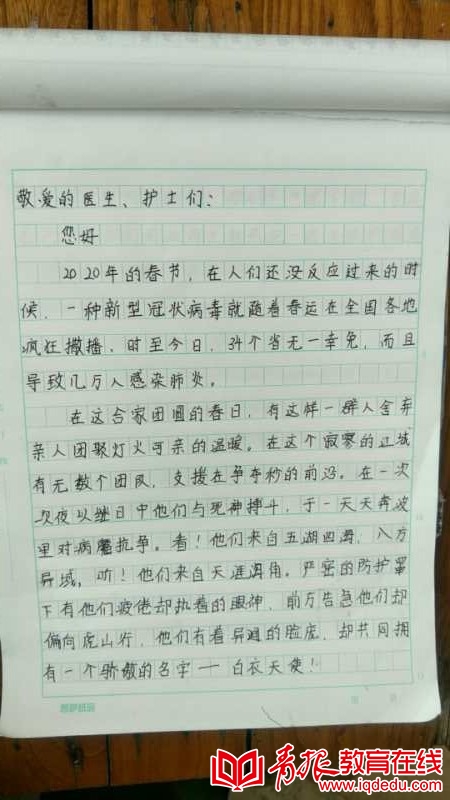 敬爱的医生、护士们:
您好
2020年的春节,在人们还没反应过来的时
候,一种新型冠状病毒就随着春运在全国各地
疯狂撒播,时至今日,34个省无一幸免,而且
导致几万人感染肺炎。
在这合家团圆的春日,有这样一群人舍弃
亲人团聚灯火可亲的温暖。在这个寂寥的江城
有无数个团队,支援在争夺秒的前沿。在一次
次夜以继日中他们与死神搏斗,于一天天奔波
里对病魔抗争。看!他们来自五湖四海,入方
异域,听!他们来自天涯海角。严密的防护罩
下有他们疲倦却执着的眼神,前方告急他们却
偏向虎山行,他们有着异迥的脸庞,却共同拥
有一个骄傲的名字——白衣天使!
青报教育在线
www.iqdedu.com